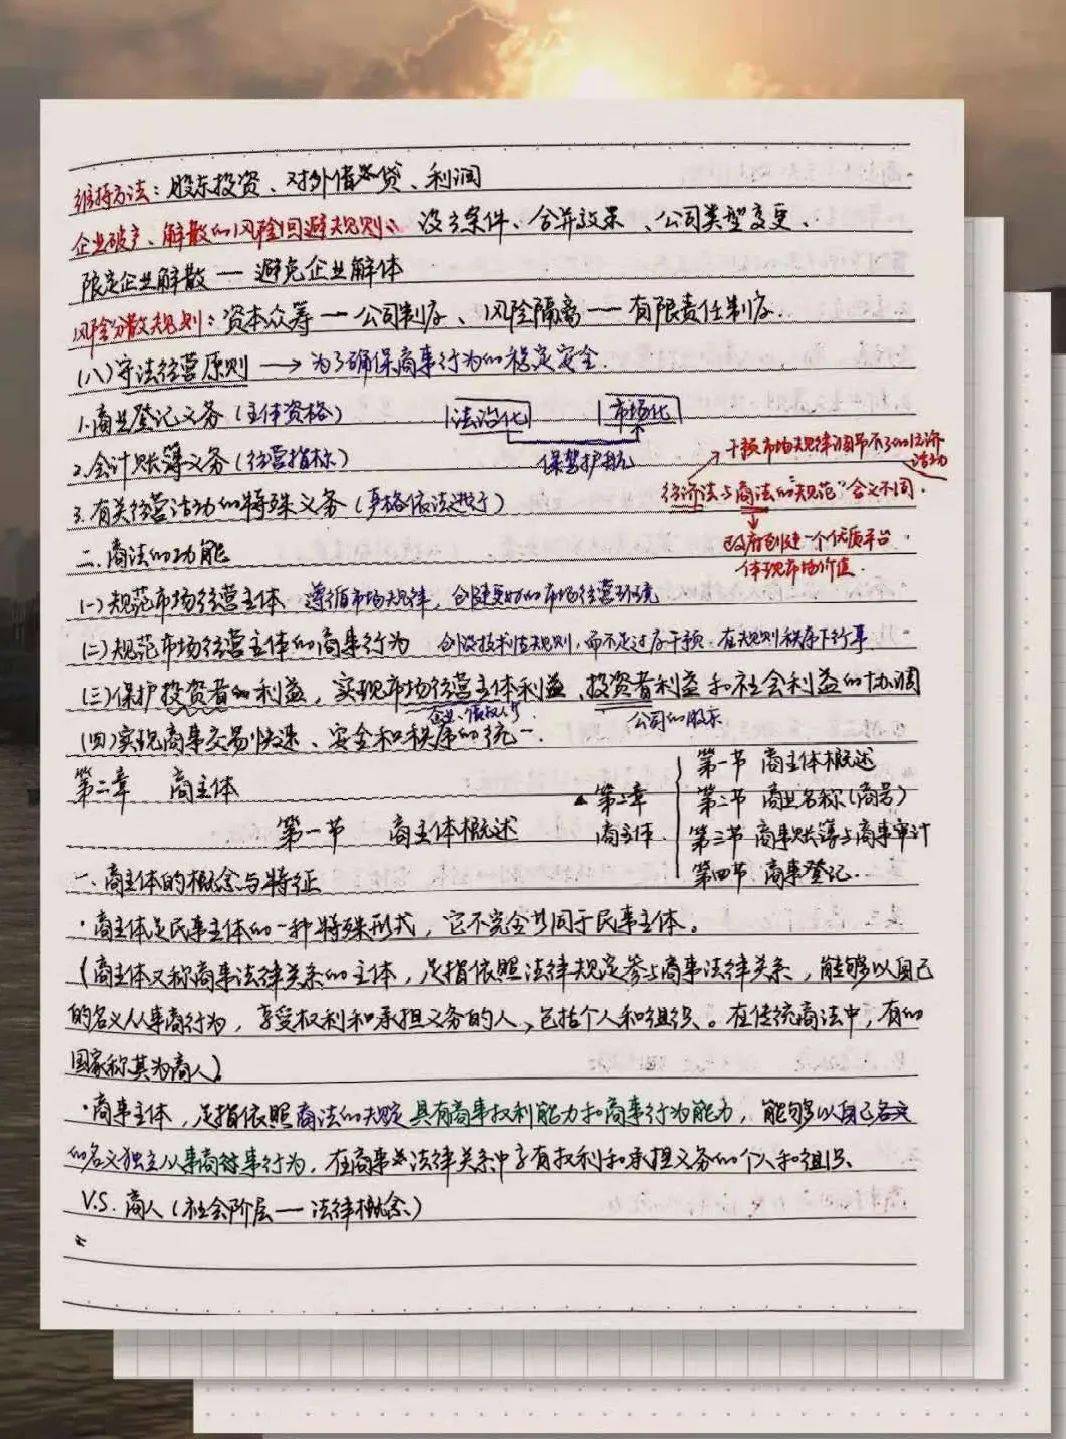 维持方法：股东投资、对外借贷、利润
企业破产、解散的风险回避规则：设立条件、合并效果、公司类型变更、
限定企业解散——避免企业解体
风险分散规则：资本众筹——公司制度、风险隔离——有限责任制度.
(八)守法经营原则 → 为了确保商事行为的稳定安全.
1.商业登记义务(主体资格)
法治化 市场化
保驾护航
2.会计账簿义务(经营指标)
干预市场规律调节不了的经济活动
经济法与商法的"规范"含义不同.
3.有关经营活动的特殊义务(严格依法进行)
政府创建一个优质平台
体现市场价值.
二.商法的功能
(一)规范市场经营主体 遵循市场规律，创建更好的市场经营环境
(二)规范市场经营主体的商事行为 创设技术性规则，而不是过度干预.在规则秩序下行事.
(三)保护投资者的利益，实现市场经营主体利益、投资者利益和社会利益的协调
企业、债权人等.
公司的股东
(四)实现商事交易快速、安全和秩序的统一.
第二章 商主体
▲第二章
商主体.
第一节 商主体概述
第二节 商业名称(商号)
第三节 商事账簿与商事审计
第四节 商事登记.
第一节 商主体概述
一.商主体的概念与特征
·商主体是民事主体的一种特殊形式，它不完全共同于民事主体。
(商主体又称商事法律关系的主体，是指依照法律规定参与商事法律关系，能够以自己
的名义从事商行为，享受权利和承担义务的人，包括个人和组织。在传统商法中，有的
国家称其为商人)
·商事主体，是指依照商法的规定具有商事权利能力和商事行为能力，能够以自己名义
的名义独立从事商事行为，在商事法律关系中享有权利和承担义务的个人和组织
V.S.商人(社会阶层——法律概念)